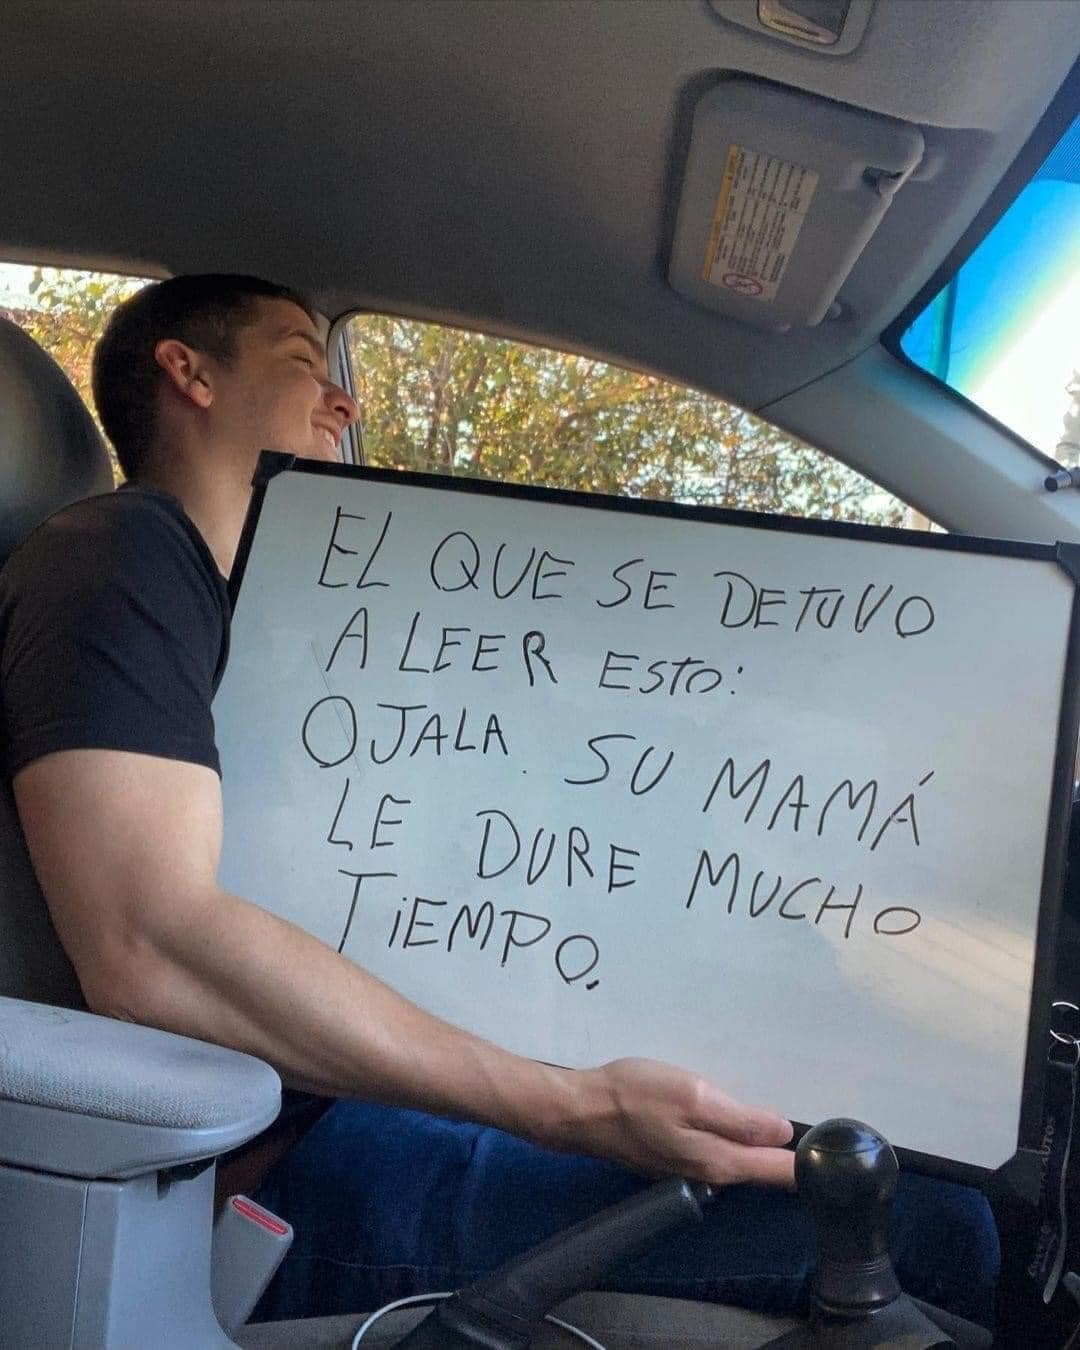 EL QUE SE DETUVO
A LEER ESTO:
OJALA SU MAMÁ
LE DURE MUCHO
TIEMPO.